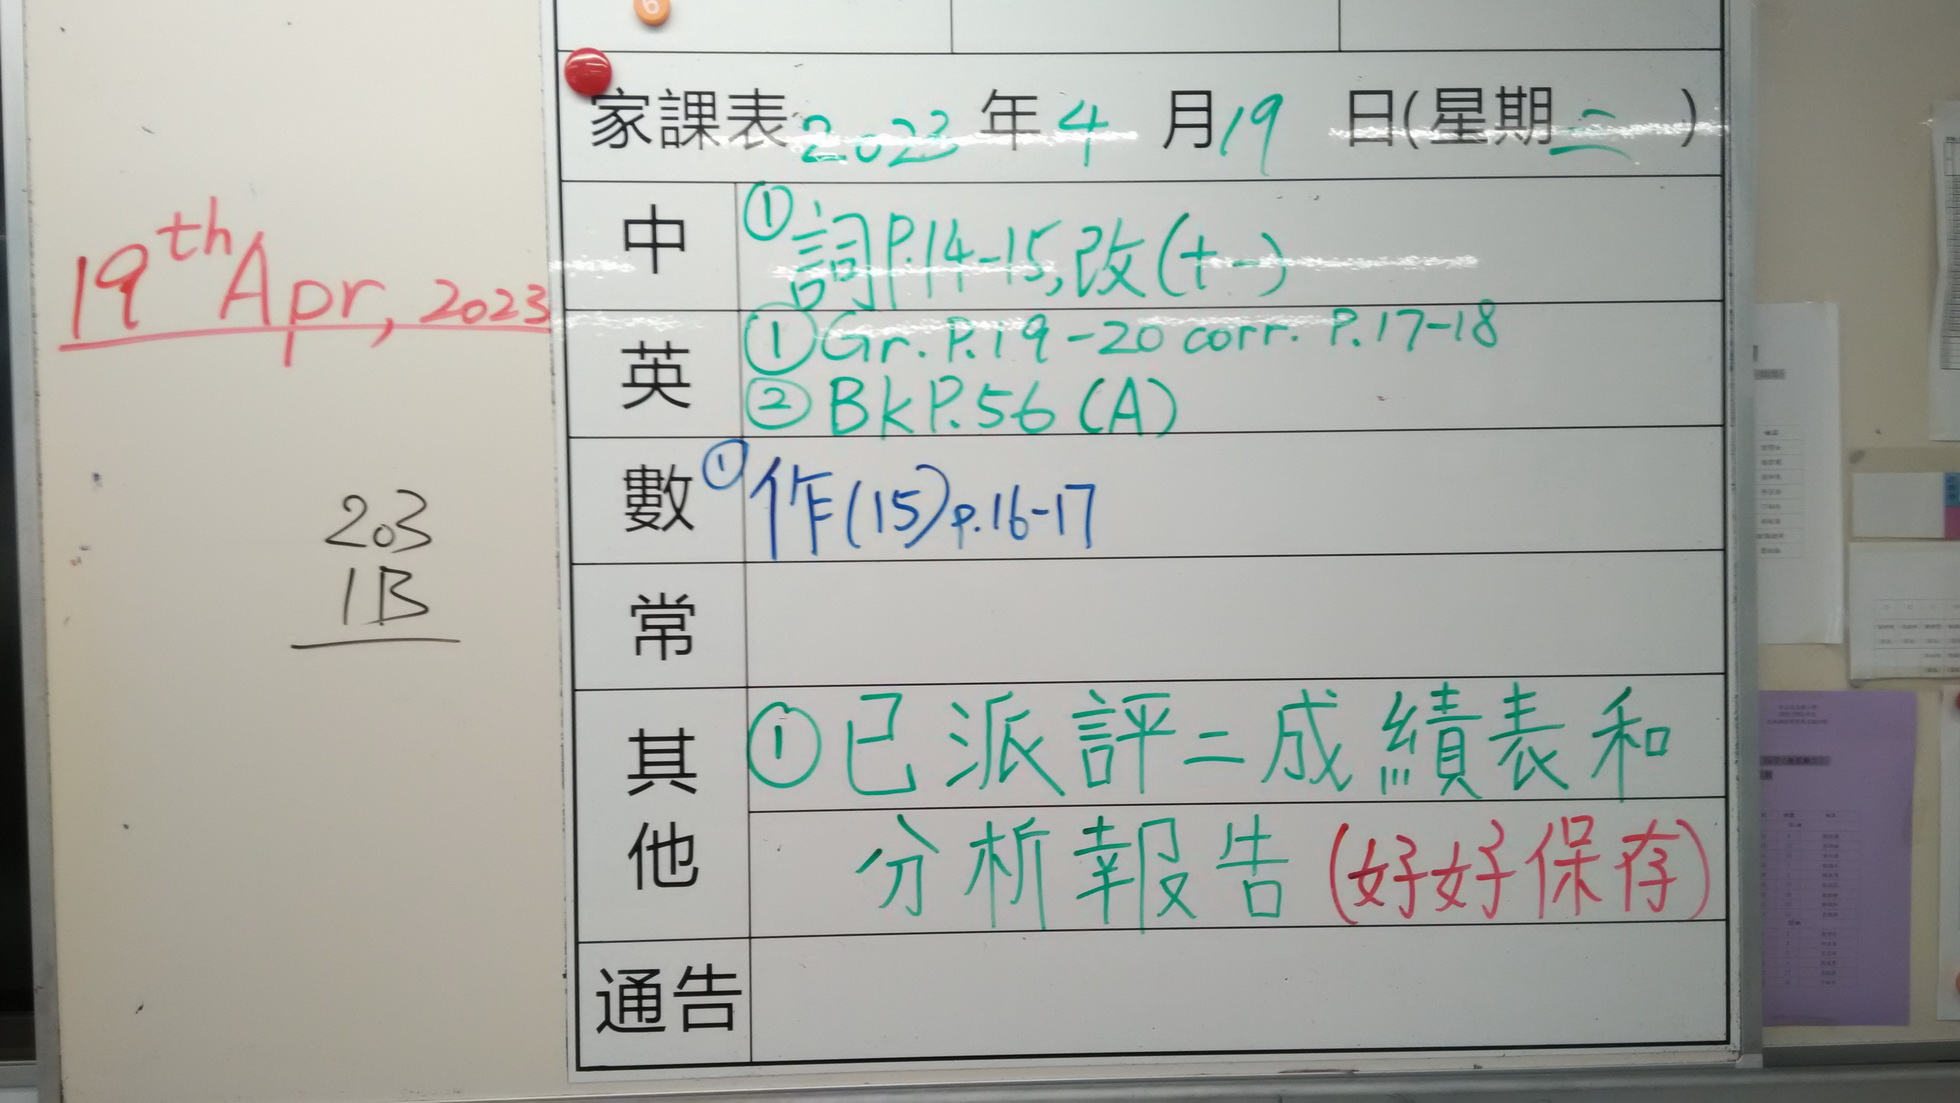 6
家課表 2023 年 4 月 19 日(星期三)
19th Apr, 2023
中
① 詞P.14-15, 改(十一)
英
① Gr. P.19-20 corr. P.17-18
② Bk P.56 (A)
數
① 作(15) p.16-17
203
1B
常
其他
① 已派評二成績表和
分析報告 (好好保存)
通告